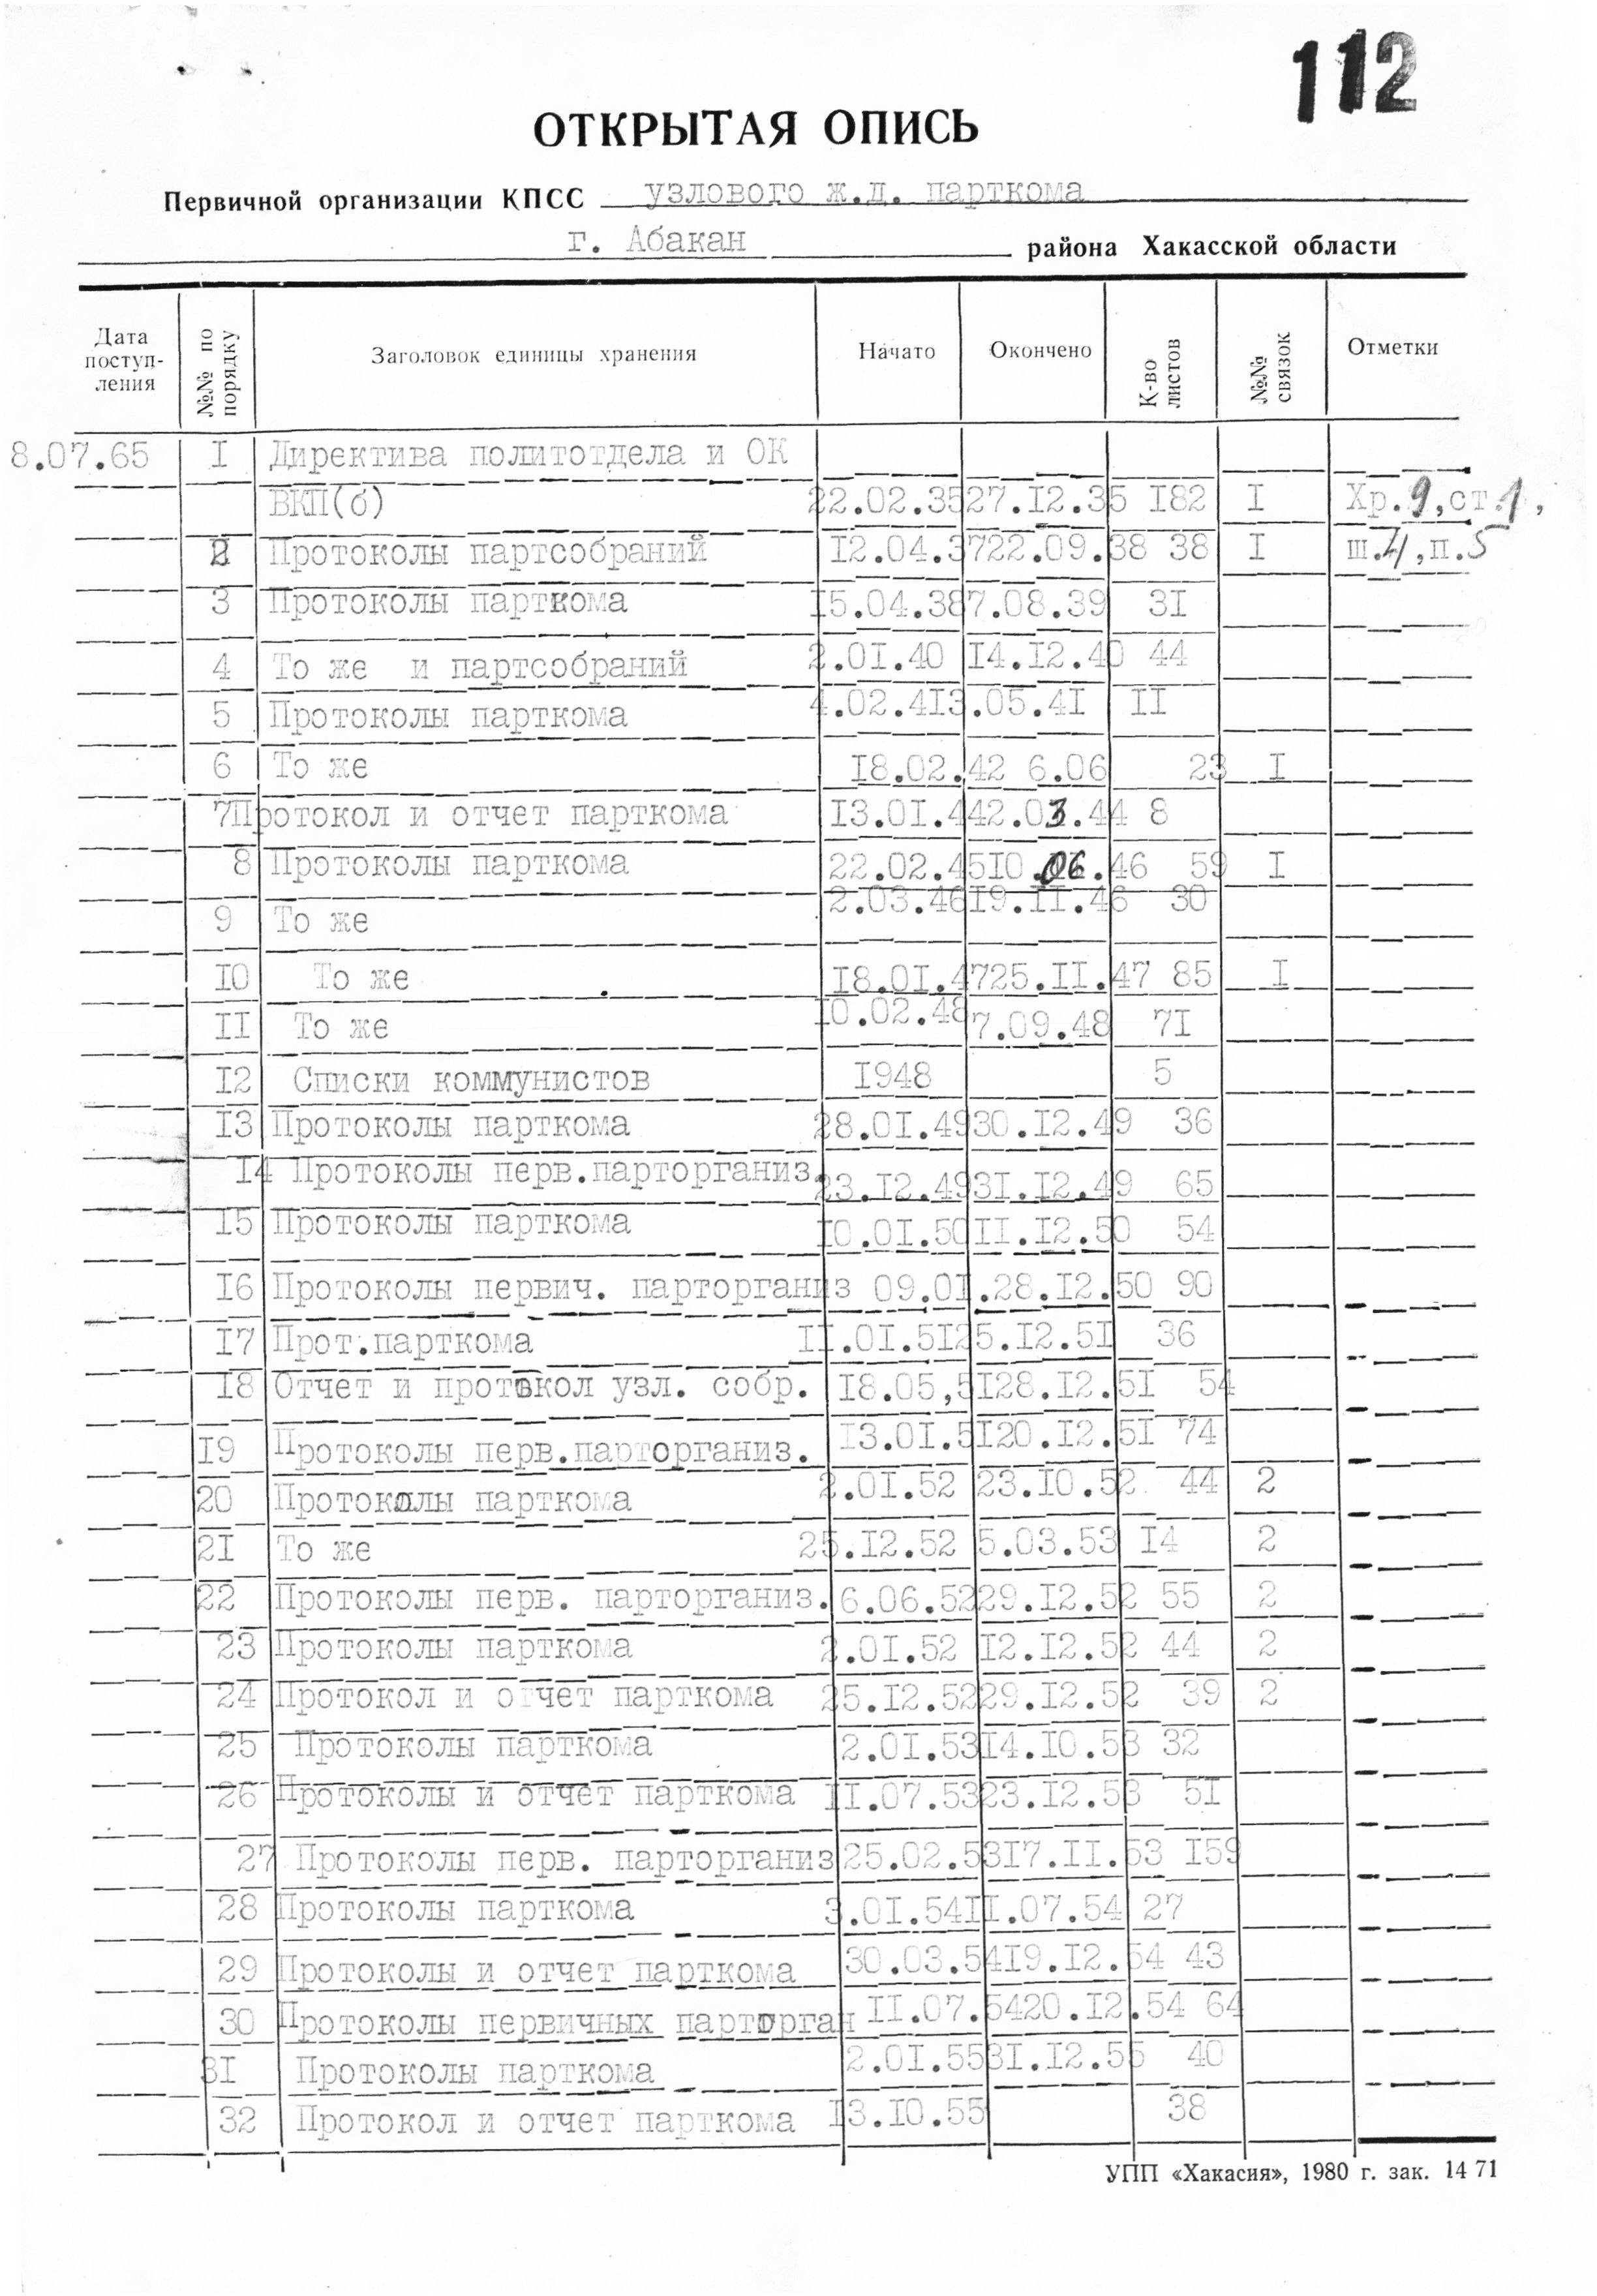 112
ОТКРЫТАЯ ОПИСЬ
Первичной организации КПСС узлового ж.д. парткома
г. Абакан района Хакасской области
Дата поступ- ления №№ по порядку Заголовок единицы хранения Начато Окончено К-во листов №№ связок Отметки
8.07.65 I Директива политотдела и ОК
ВКП(б) 22.02.35 27.I2.35 I82 I Хр.9,ст.1,
2 Протоколы партсобраний I2.04.37 22.09.38 38 I ш.4,п.5
3 Протоколы парткома I5.04.38 7.08.39 3I
4 То же и партсобраний 2.0I.40 I4.I2.40 44
5 Протоколы парткома 4.02.4I 3.05.4I II
6 То же I8.02.42 6.06 23 I
7 Протокол и отчет парткома I3.0I.44 2.03.44 8
8 Протоколы парткома 22.02.45 I0.06.46 59 I
9 То же 2.03.46 I9.II.46 30
I0 То же I8.0I.47 25.II.47 85 I
II То же I0.02.48 7.09.48 7I
I2 Списки коммунистов I948 5
I3 Протоколы парткома 28.0I.49 30.I2.49 36
I4 Протоколы перв.парторганиз. 23.I2.49 3I.I2.49 65
I5 Протоколы парткома I0.0I.50 II.I2.50 54
I6 Протоколы первич. парторганиз 09.0I. 28.I2.50 90
I7 Прот.парткома II.0I.5I 25.I2.5I 36
I8 Отчет и протокол узл. собр. I8.05,5I 28.I2.5I 54
I9 Протоколы перв.парторганиз. I3.0I.5I 20.I2.5I 74
20 Протоколы парткома 2.0I.52 23.I0.52 44 2
2I То же 25.I2.52 5.03.53 I4 2
22 Протоколы перв. парторганиз. 6.06.52 29.I2.52 55 2
23 Протоколы парткома 2.0I.52 I2.I2.52 44 2
24 Протокол и отчет парткома 25.I2.52 29.I2.52 39 2
25 Протоколы парткома 2.0I.53 I4.I0.53 32
26 Протоколы и отчет парткома II.07.53 23.I2.53 5I
27 Протоколы перв. парторганиз 25.02.53 I7.II.53 I59
28 Протоколы парткома 3.0I.54 II.07.54 27
29 Протоколы и отчет парткома 30.03.54 I9.I2.54 43
30 Протоколы первичных парторган II.07.54 20.I2.54 64
3I Протоколы парткома 2.0I.55 3I.I2.55 40
32 Протокол и отчет парткома I3.I0.55 38
УПП «Хакасия», 1980 г. зак. 1471